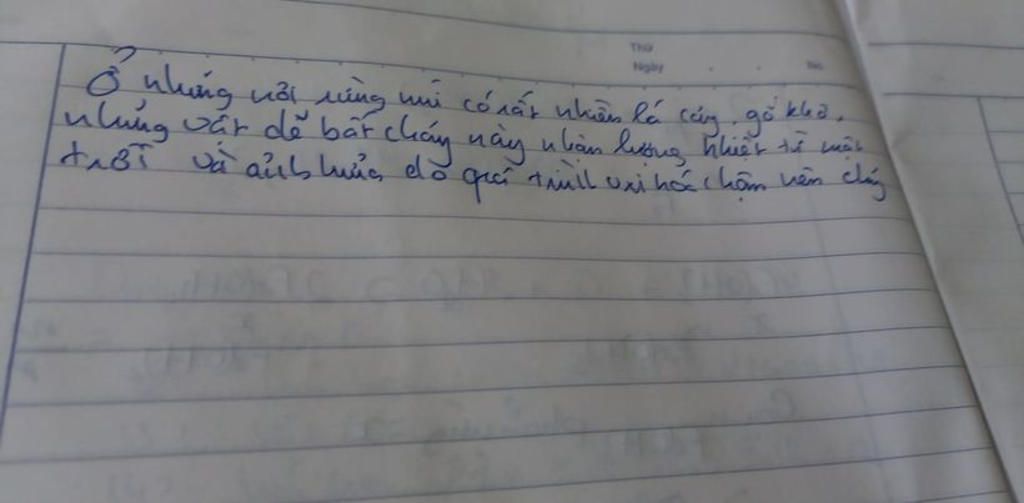 Thứ
Ngày No.
Ở những nơi rừng núi có rất nhiều lá cây, gỗ khô.
những vật dễ bắt cháy này nhận lượng nhiệt từ mặt
trời và ảnh hưởng do quá trình oxi hoá chậm nên cháy